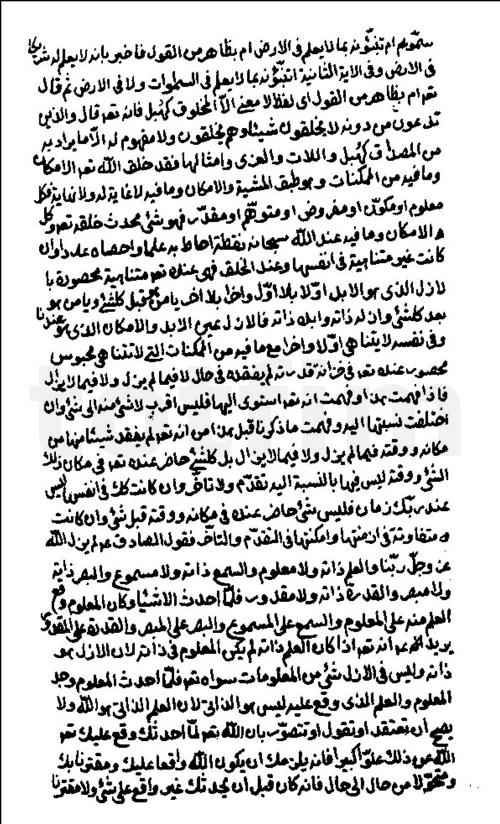 سمّوهم ام تنبّؤنه بما لا يعلم فى الارض ام بظاهر من القول فاخبر بانه لا يعلم له شريكا
فى الارض وفى الاية الثانية اتنبّؤنه بما لا يعلم فى السموات ولا فى الارض ثم قال
تعه ام بظاهر من القول اى لفظ لا معنى الّا المخلوق كهبل فانه تعه قال والذين
تدعون من دونه لا يخلقون شيئا وهم يخلقون ولا مفهوم له الّا ما يراد به
من المصداق كهبل واللات والعزى وامثالها فقد خلق الله تعه الامكان
وما فيه من الممكنات وهو طبق المشية والامكان وما فيه لا غاية له ولا نهاية فكل
معلوم او مكوّن او مفروض او متوهّم او مقدّر فهو شئ محدث خلقه تعه وكل
الامكان وما فيه عند الله سبحانه نقطة احاط به علما واحصاه عددا وان
كانت غير متناهية فى انفسها وعند الخلق فهى عنده تعه متناهية محصورة يا
لازل الذى هو الابد اوّلا بلا اوّل واخرا بلا اخر يا من هو قبل كلشئ ويا من هو
بعد كلشئ وازله ذاته وابده ذاته فالازل عين الابد والامكان الذى هو عندنا
وفى نفسه لا يتناهى اوّلا واخرا مع ما فيه من الممكنات التى لا تتناهى محبوس
محصور عنده تعه فى خزانة قدرته لم يفقده فى حال لا فيما لم يزل ولا فيما لا يزال
فاذا فهمت هذا وفهمت انه تعه استوى اليها فليس اقرب لا شئ منه الى شئ وان
اختلفت نسبتها اليه وفهمت ما ذكرنا قبل هذا من انه تعه لم يفقد شيئا منها من
مكانه ووقته فيما لم يزل ولا فيما لا يزال بل كلشئ حاضر عنده تعه فى مكان ذلك
الشئ ووقته ليس فيها بالنسبة اليه تقدّم ولا تاخّر وان كانت كك فى انفسها ليس
عند ربّك زمان فليس شئ حاضر عنده فى مكانه ووقته قبل شئ وان كانت
متفاوتة فى ازمنتها وامكنتها فى التقدّم والتاخّر فقول الصادق ع لم يزل الله
عز وجلّ ربّنا والعلم ذاته ولا معلوم والسمع ذاته ولا مسموع والبصر ذاته
ولا مبصر والقدرة ذاته ولا مقدور فلمّا احدث الاشياء وكان المعلوم وقع
العلم منه على المعلوم والسمع على المسموع والبصر على المبصر والقدرة على المقدور
يريد انه تعه اذا كان العلم ذاته لم يكن المعلوم فى ذاته لان الازل هو
ذاته وليس فى الازل شئ من المعلومات سواه تعه فلمّا احدث المعلوم وجد
المعلوم والعلم الذى وقع عليه ليس هو الذاتى لان العلم الذاتى هو الله ولا
يصح ان تعتقد او تقول او تتصوّر بان الله تعه لمّا احدثك وقع عليك تعه
الله عن ذلك علوّا كبيرا فانه يلزمك ان يكون الله واقعا عليك ومقترنا بك
ومتحوّلا من حال الى حال فانه كان قبل ان يحدثك غير واقع على شئ ولا مقترنا